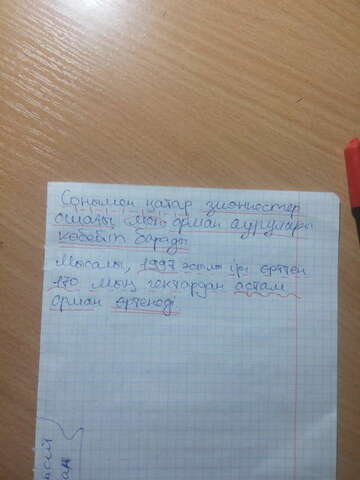 Сонымен қатар зиянкестер
ошағы, мен орман аурулары
көбейіп барады
Мысалы, 1997 жылы ірі өрттен
170 мың гектардан астам
орман өртенді